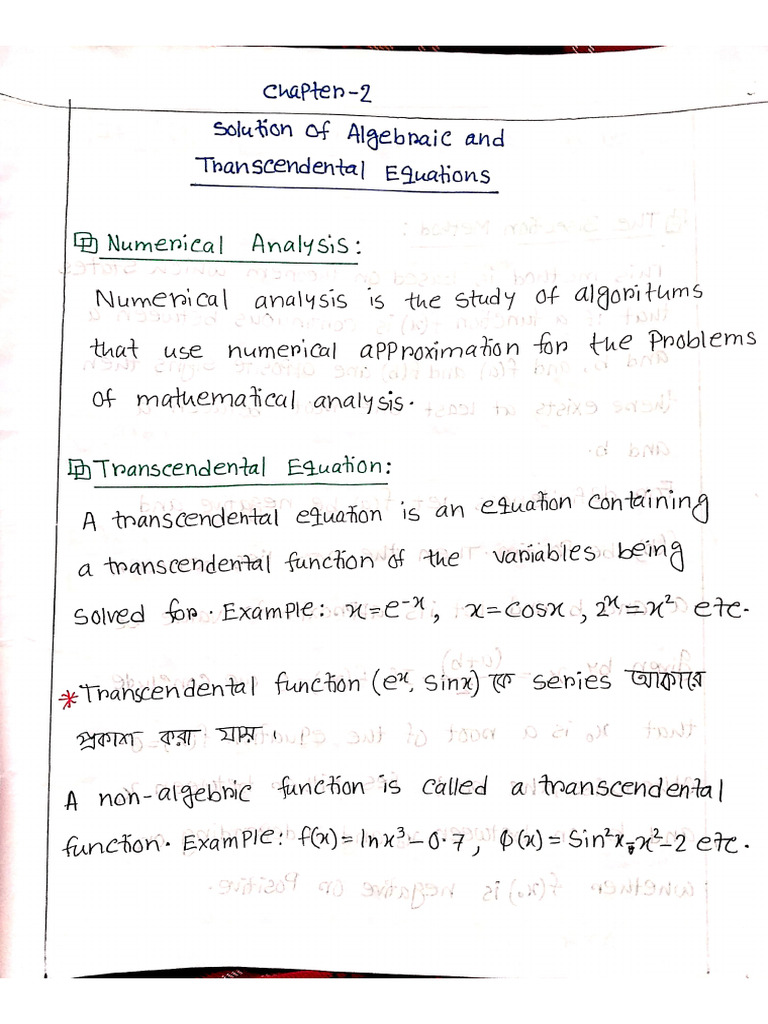 Chapter-2
Solution of Algebraic and
Transcendental Equations
Numerical Analysis:
Numerical analysis is the study of algorithms
that use numerical approximation for the problems
of mathematical analysis.
Transcendental Equation:
A transcendental equation is an equation containing
a transcendental function of the variables being
solved for. Example: x=e⁻ˣ, x=cosx, 2ˣ=x² etc.
*Transcendental function (eˣ, sinx) কে series আকারে
প্রকাশ করা যায়।
A non-algebric function is called a transcendental
function. Example: f(x)=lnx³-0.7, φ(x)=Sin²x-x²-2 etc.